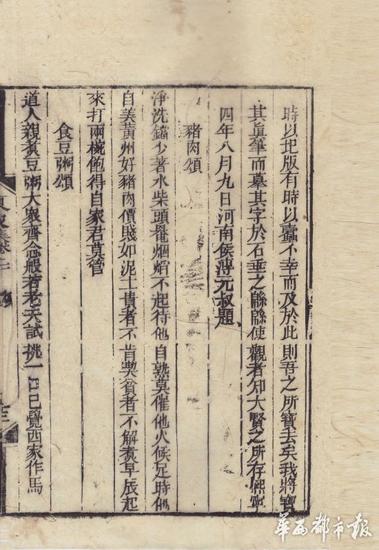 時以圯版有時以蠹不幸而及於此則吾之所寶去矣我將寶
其眞筆而墓其字於石垂之緜緜使觀者知大賢之所存熙寧
四年八月九日河南侯薄元叔題
豬肉頌
淨洗鐺少著水柴頭罨烟焰不起待他自熟莫催他火候足時他
自美黃州好豬肉價賤如泥土貴者不肯喫貧者不解煑早辰起
來打兩椀飽得自家君莫管
食豆粥頌
道人親煑豆粥大衆齊念般若老夫試挑一口已覺西家作馬
華西都市报